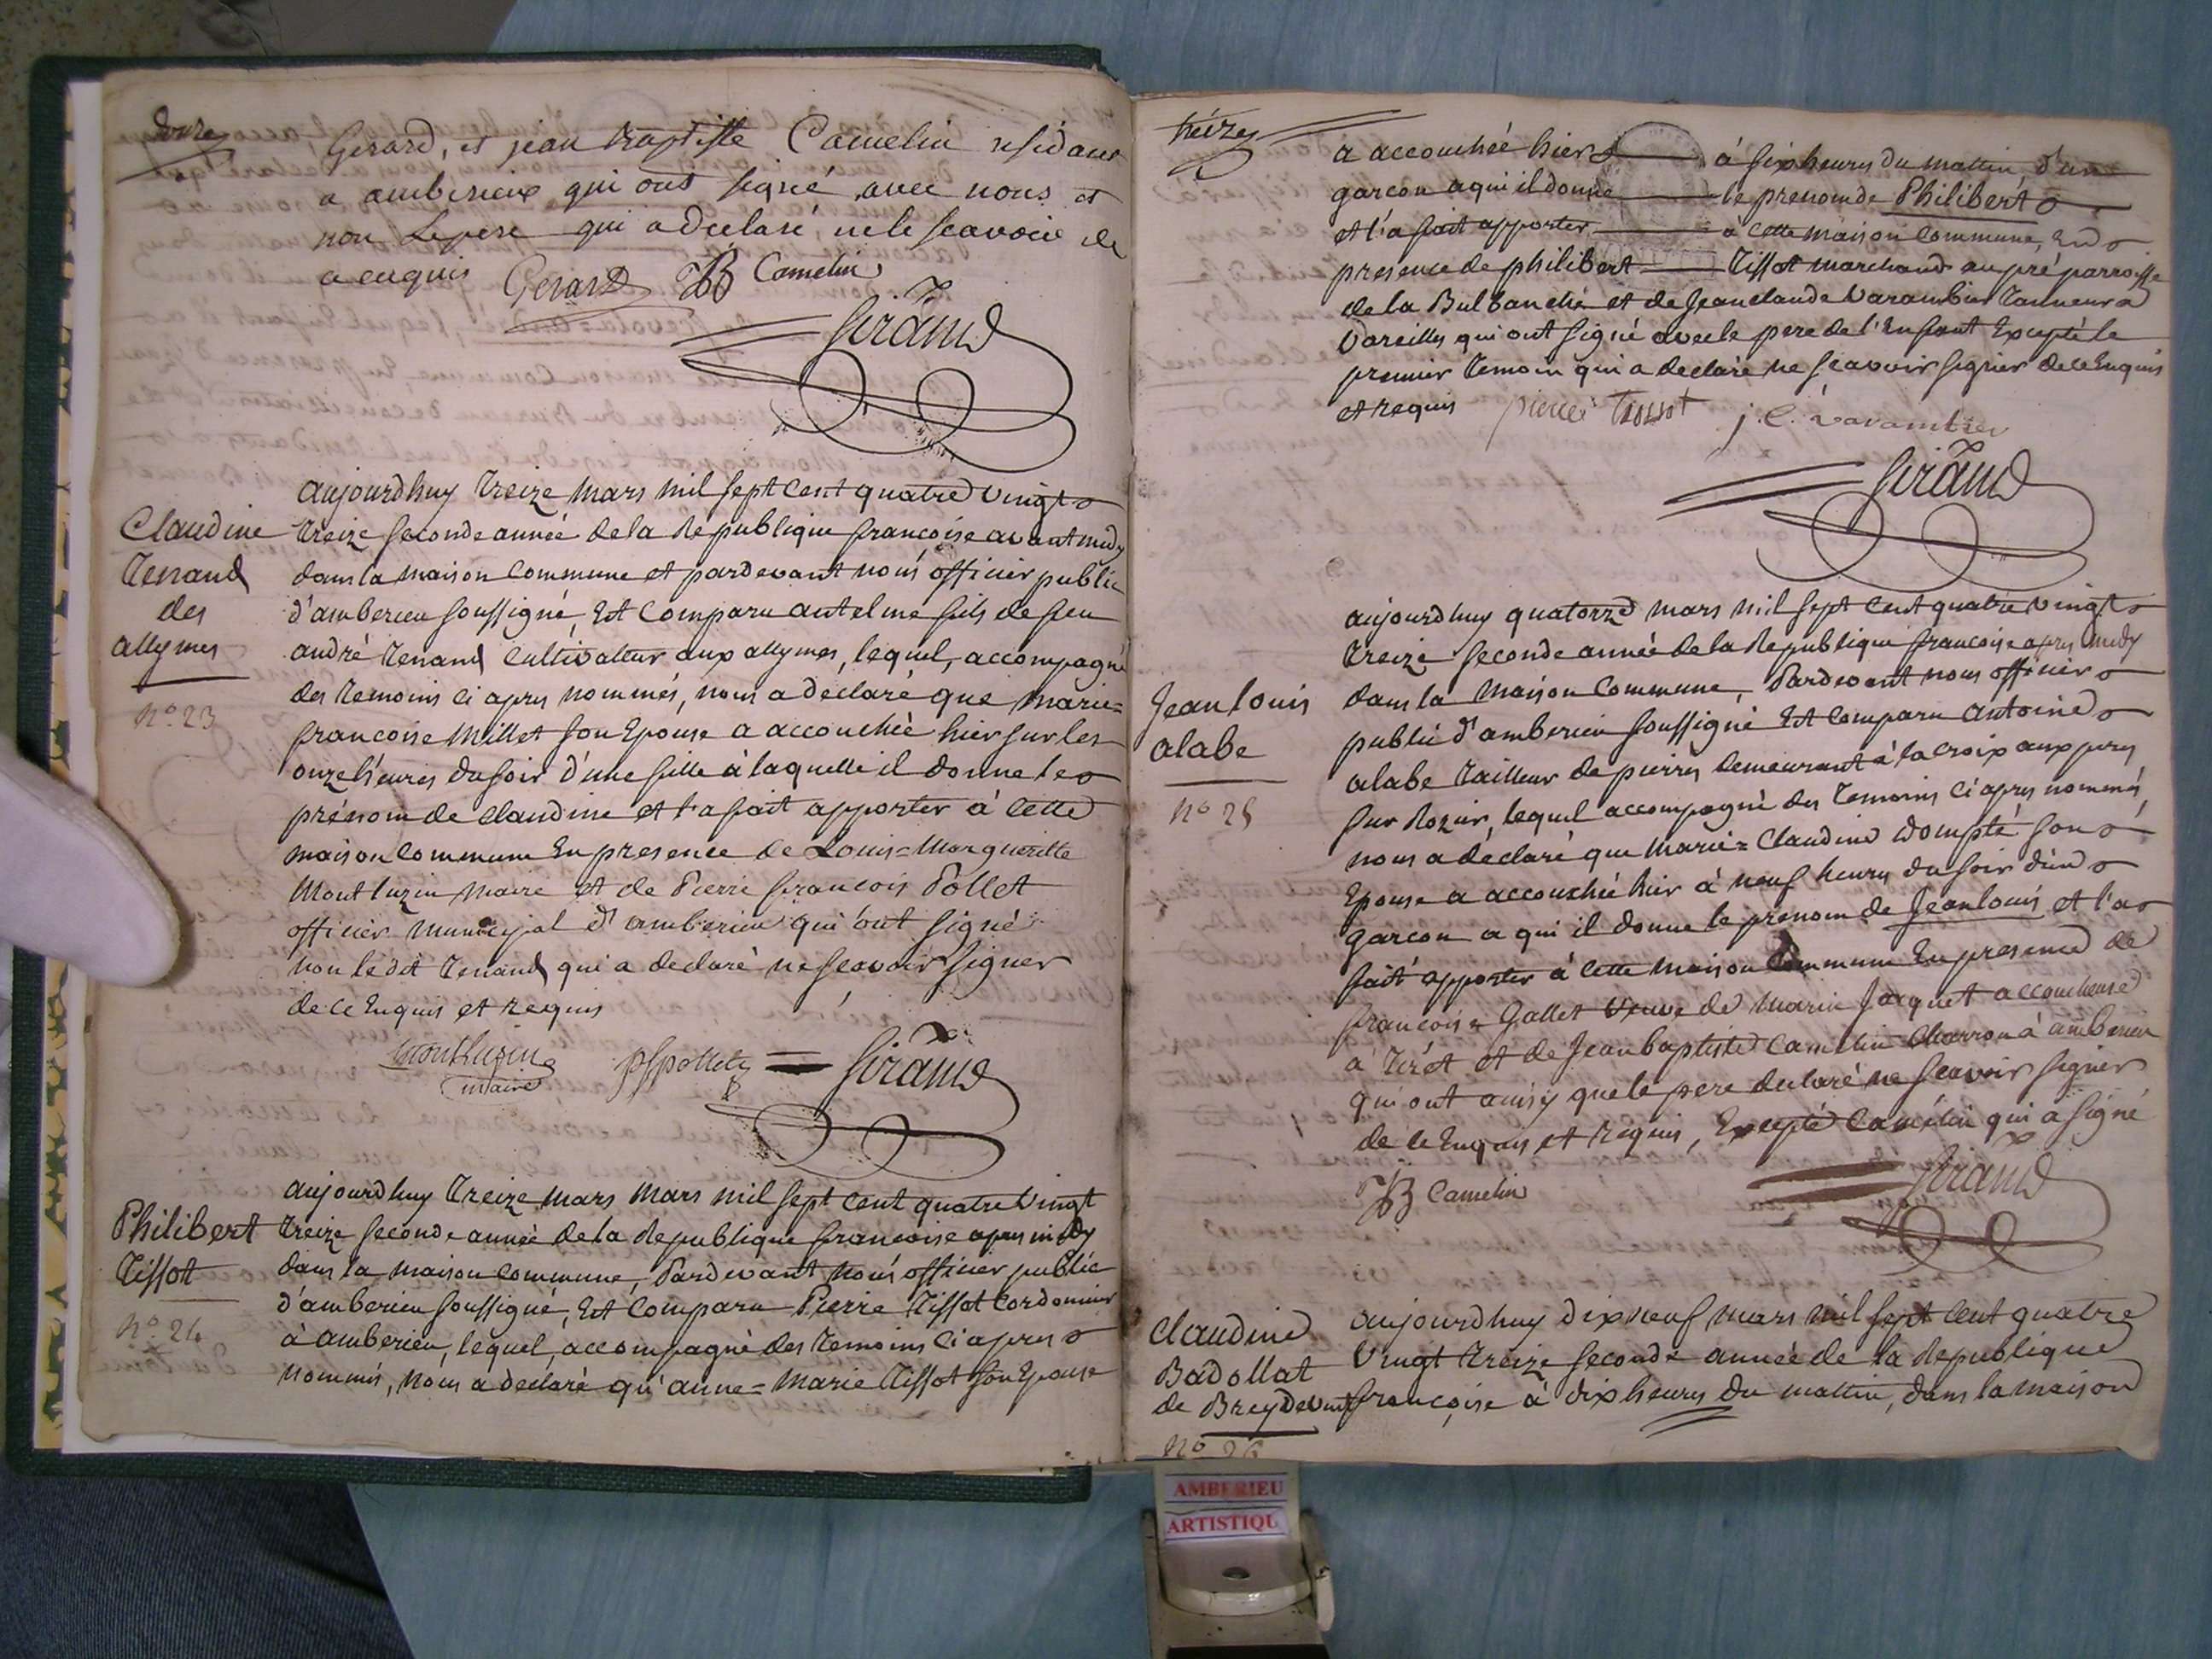 douze
Gerard, et jean Baptiste Camelin residans
a amberieux qui ont signé avec nous et
non Le pere qui a declaré ne le scavoir de
ce enquis Gerard JB Camelin
Giraud
Claudine
Tenand
des
allymes
nº 23
aujourdhuy treize mars mil sept cent quatre vingt
treize seconde année de la Republique francoise avant midy
dans la maison Commune et pardevant nous officier public
d'amberieu soussigné, Est Comparu antelme fils de feu
andré Tenand Cultivateur aux allymes, lequel, accompagné
des temoins ci apres nommés, nous a déclaré que marie=
francoise Millet son Epouse a accouchée hier sur les
onze heures du soir d'une fille à laquelle il donne le
prénom de Claudine et l'a fait apporter à Cette
maison Commune En presence de Louis=Margueritte
Montluzin maire et de Pierre francois Pollet
officier municipal d'amberieu qui ont signé
non le dit Tenand qui a declaré ne scavoir signer
de ce Enquis et requis
Montluzin
maire
pfpollet
Giraud
Philibert
Tissot
nº 24
aujourdhuy treize mars mars mil sept cent quatre vingt
treize seconde année de la Republique francoise apres midy
dans la maison commune, Pardevant nous officier public
d'amberieu soussigné, Est Comparu Pierre Tissot Cordonnier
à amberieu, lequel, accompagné des temoins ci apres
nommés, nous a declaré qu'anne=Marie Tissot son Epouse
treize
a accouchée hier à six heures du mattin, d'un
garcon a qui il donne le prenom de Philibert
et l'a fait apporter à cette maison Commune, En
presence de philibert Tissot marchand au pré parroisse
de la Bulbanche et de Jean claude Varambier Tanneur a
Vareilles qui ont signé avec le pere de l'Enfant Excepté le
premier temoin qui a declaré ne scavoir signer de ce Enquis
et requis pierre tissot j. C. varambier
Giraud
Jean louis
alabe
nº 25
aujourdhuy quatorze mars mil sept cent quatre vingt
treize seconde année de la Republique francoise apres midy
dans la maison Commune, Pardevant nous officier
public d'amberieu soussigné Est Comparu Antoine
alabe Tailleur de pierres demeurant à la croix aux
sur Rozier, lequel accompagné des temoins ci apres nommés,
nous a déclaré que Marie=Claudine Dompté son
Epouse a accouchée hier à neuf heures du soir d'un
garcon a qui il donne le prenom de Jean louis et l'a
fait apporter à cette maison Commune En presence de
francoise Gallet Veuve de Marin Jacquet accoucheuse
à Tirét et de Jean baptiste Camelin Charron à amberieu
qui ont ainsy que le pere declaré ne scavoir signer
de ce Enquis et requis, Excepté Camelin qui a signé
JB Camelin
Giraud
Claudine
Badollat
de Breydevent
nº 26
aujourdhuy dix neuf mars mil sept cent quatre
vingt treize seconde année de la Republique
françoise à dix heures du mattin, dans la maison
AMBERIEU
ARTISTIQU